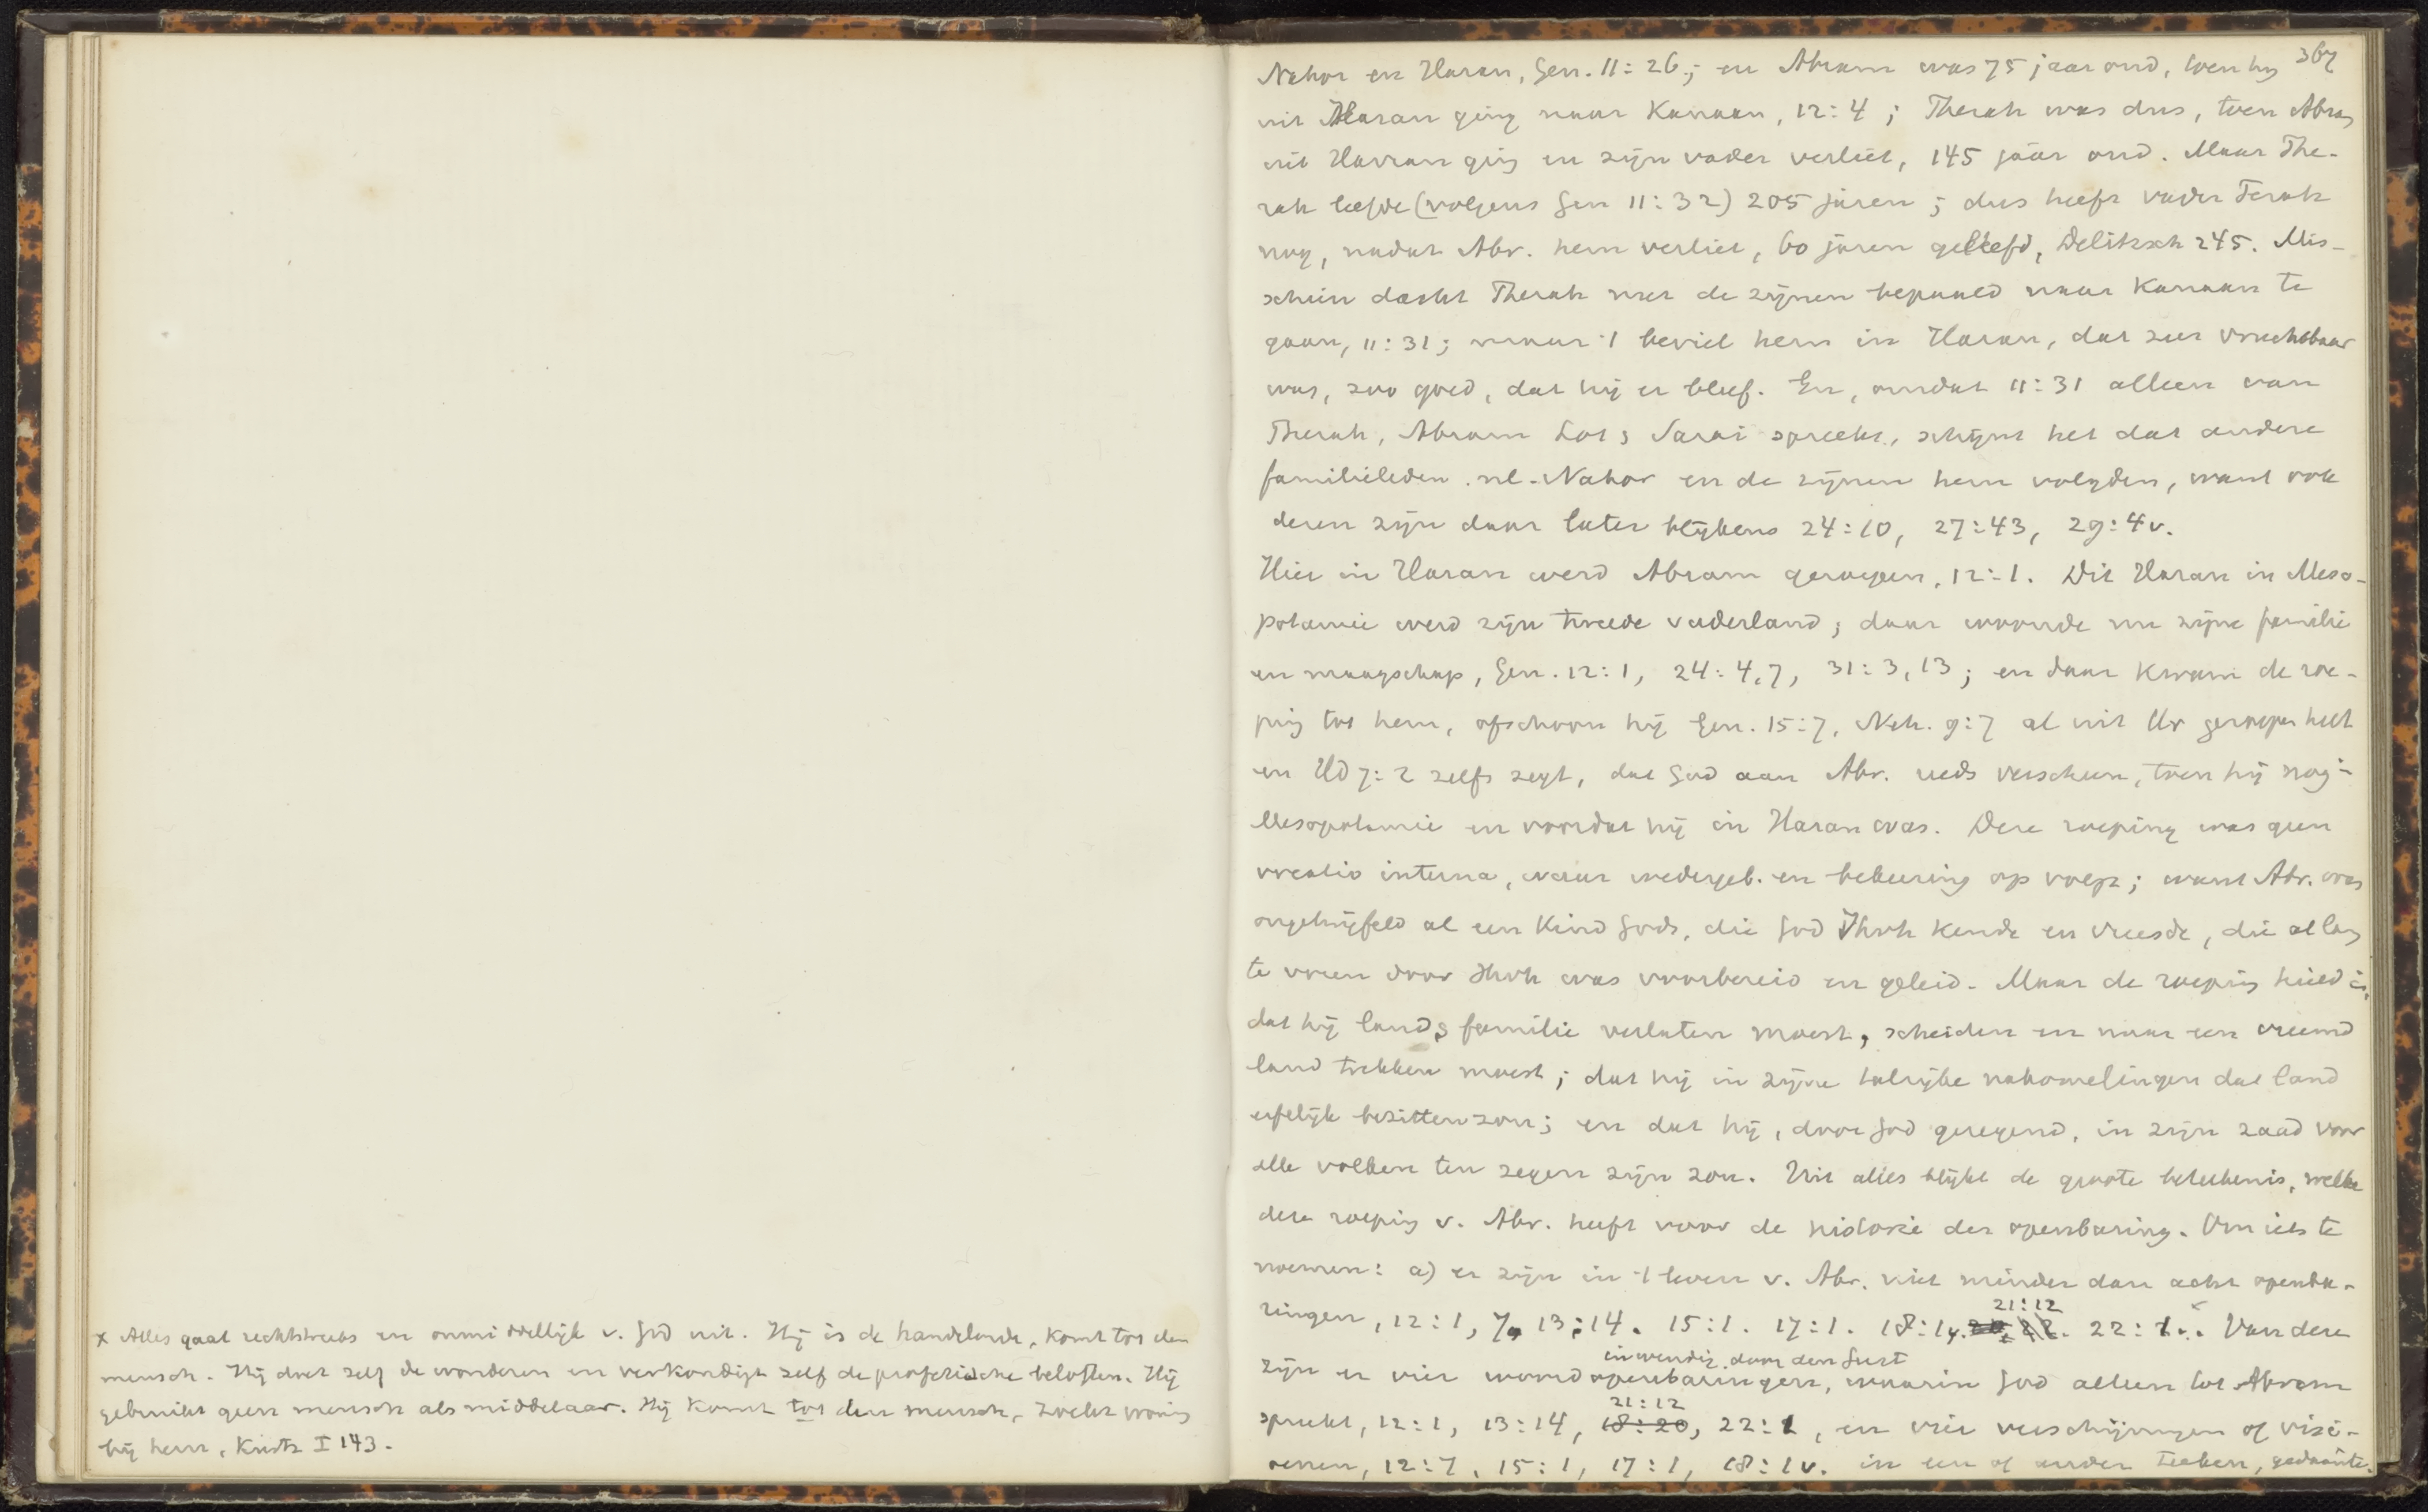 x Alles gaat rechtstreeks en onmiddellijk v. God uit. Hij is de handelende, komt tot den
mensch. Hij doet zelf de wonderen en verkondigt zelf de profetische beloften. Hij
gebruikt geen mensch als middelaar. Hij komt tot den mensch, zoekt woning
bij hem, Kurtz I 143.
367
Nahor en Haran, Gen. 11:26; en Abram was 75 jaar oud, toen hij
uit Haran ging naar Kanaan, 12:4; Therah was dus, toen Abram
uit Harran ging en zijn vader verliet, 145 jaar oud. Maar The-
rah leefde (volgens Gen 11:32) 205 jaren; dus heeft vader Terah
nog, nadat Abr. hem verliet, 60 jaren geleefd, Delitzsch 245. Mis-
schien dacht Therah met de zijnen bepaald naar Kanaan te
gaan, 11:31; maar 't beviel hem in Haran, dat zeer vruchtbaar
was, zoo goed, dat hij er bleef. En, omdat 11:31 alleen van
Therah, Abram Lot & Sarai spreekt, schijnt het dat andere
familieleden nl. Nahor en de zijnen hem volgden, want ook
dezen zijn daar later blijkens 24:10, 27:43, 29:4v.
Hier in Haran werd Abram geroepen, 12:1. Dit Haran in Meso-
potamie werd zijn tweede vaderland; daar woonde nu zijne familie
en maagschap, Gen. 12:1, 24:4,7, 31:3,13; en daar kwam de roe-
ping tot hem, ofschoon hij Gen. 15:7, Neh. 9:7 al uit Ur geroepen heet
en Hd 7:2 zelfs zegt, dat God aan Abr. reeds verscheen, toen hij nog in
Mesopotamie en voordat hij in Haran was. Deze roeping was geen
vocatio interna, waar wedergeb. en bekeering op volgt; want Abr. was
ongetwijfeld al een kind Gods, die God Jhvh kende en vreesde, die al lang
te voren door Jhvh was voorbereid en geleid. Maar de roeping hield in,
dat hij land & familie verlaten moest, scheiden en naar een vreemd
land trekken moest; dat hij in zijne talrijke nakomelingen dat land
erfelijk bezitten zou; en dat hij, door God gezegend, in zijn zaad voor
alle volken ten zegen zijn zou. Uit alles blijkt de groote beteekenis, welke
deze roeping v. Abr. heeft voor de historie der openbaring. Om iets te
noemen: a) er zijn in 't leven v. Abr. niet minder dan acht openba-
21:12 x
ringen, 12:1, 7, 13:14. 15:1. 17:1. 18:1v. 22:1v. Van deze
inwendig door den Geest
zijn er vier woordopenbaringen, waarin God alleen tot Abram
21:12
spreekt, 12:1, 13:14, 18:20, 22:1, en vier verschijningen of visi-
oenen, 12:7, 15:1, 17:1, 18:1v. in een of ander teeken, gedaante.